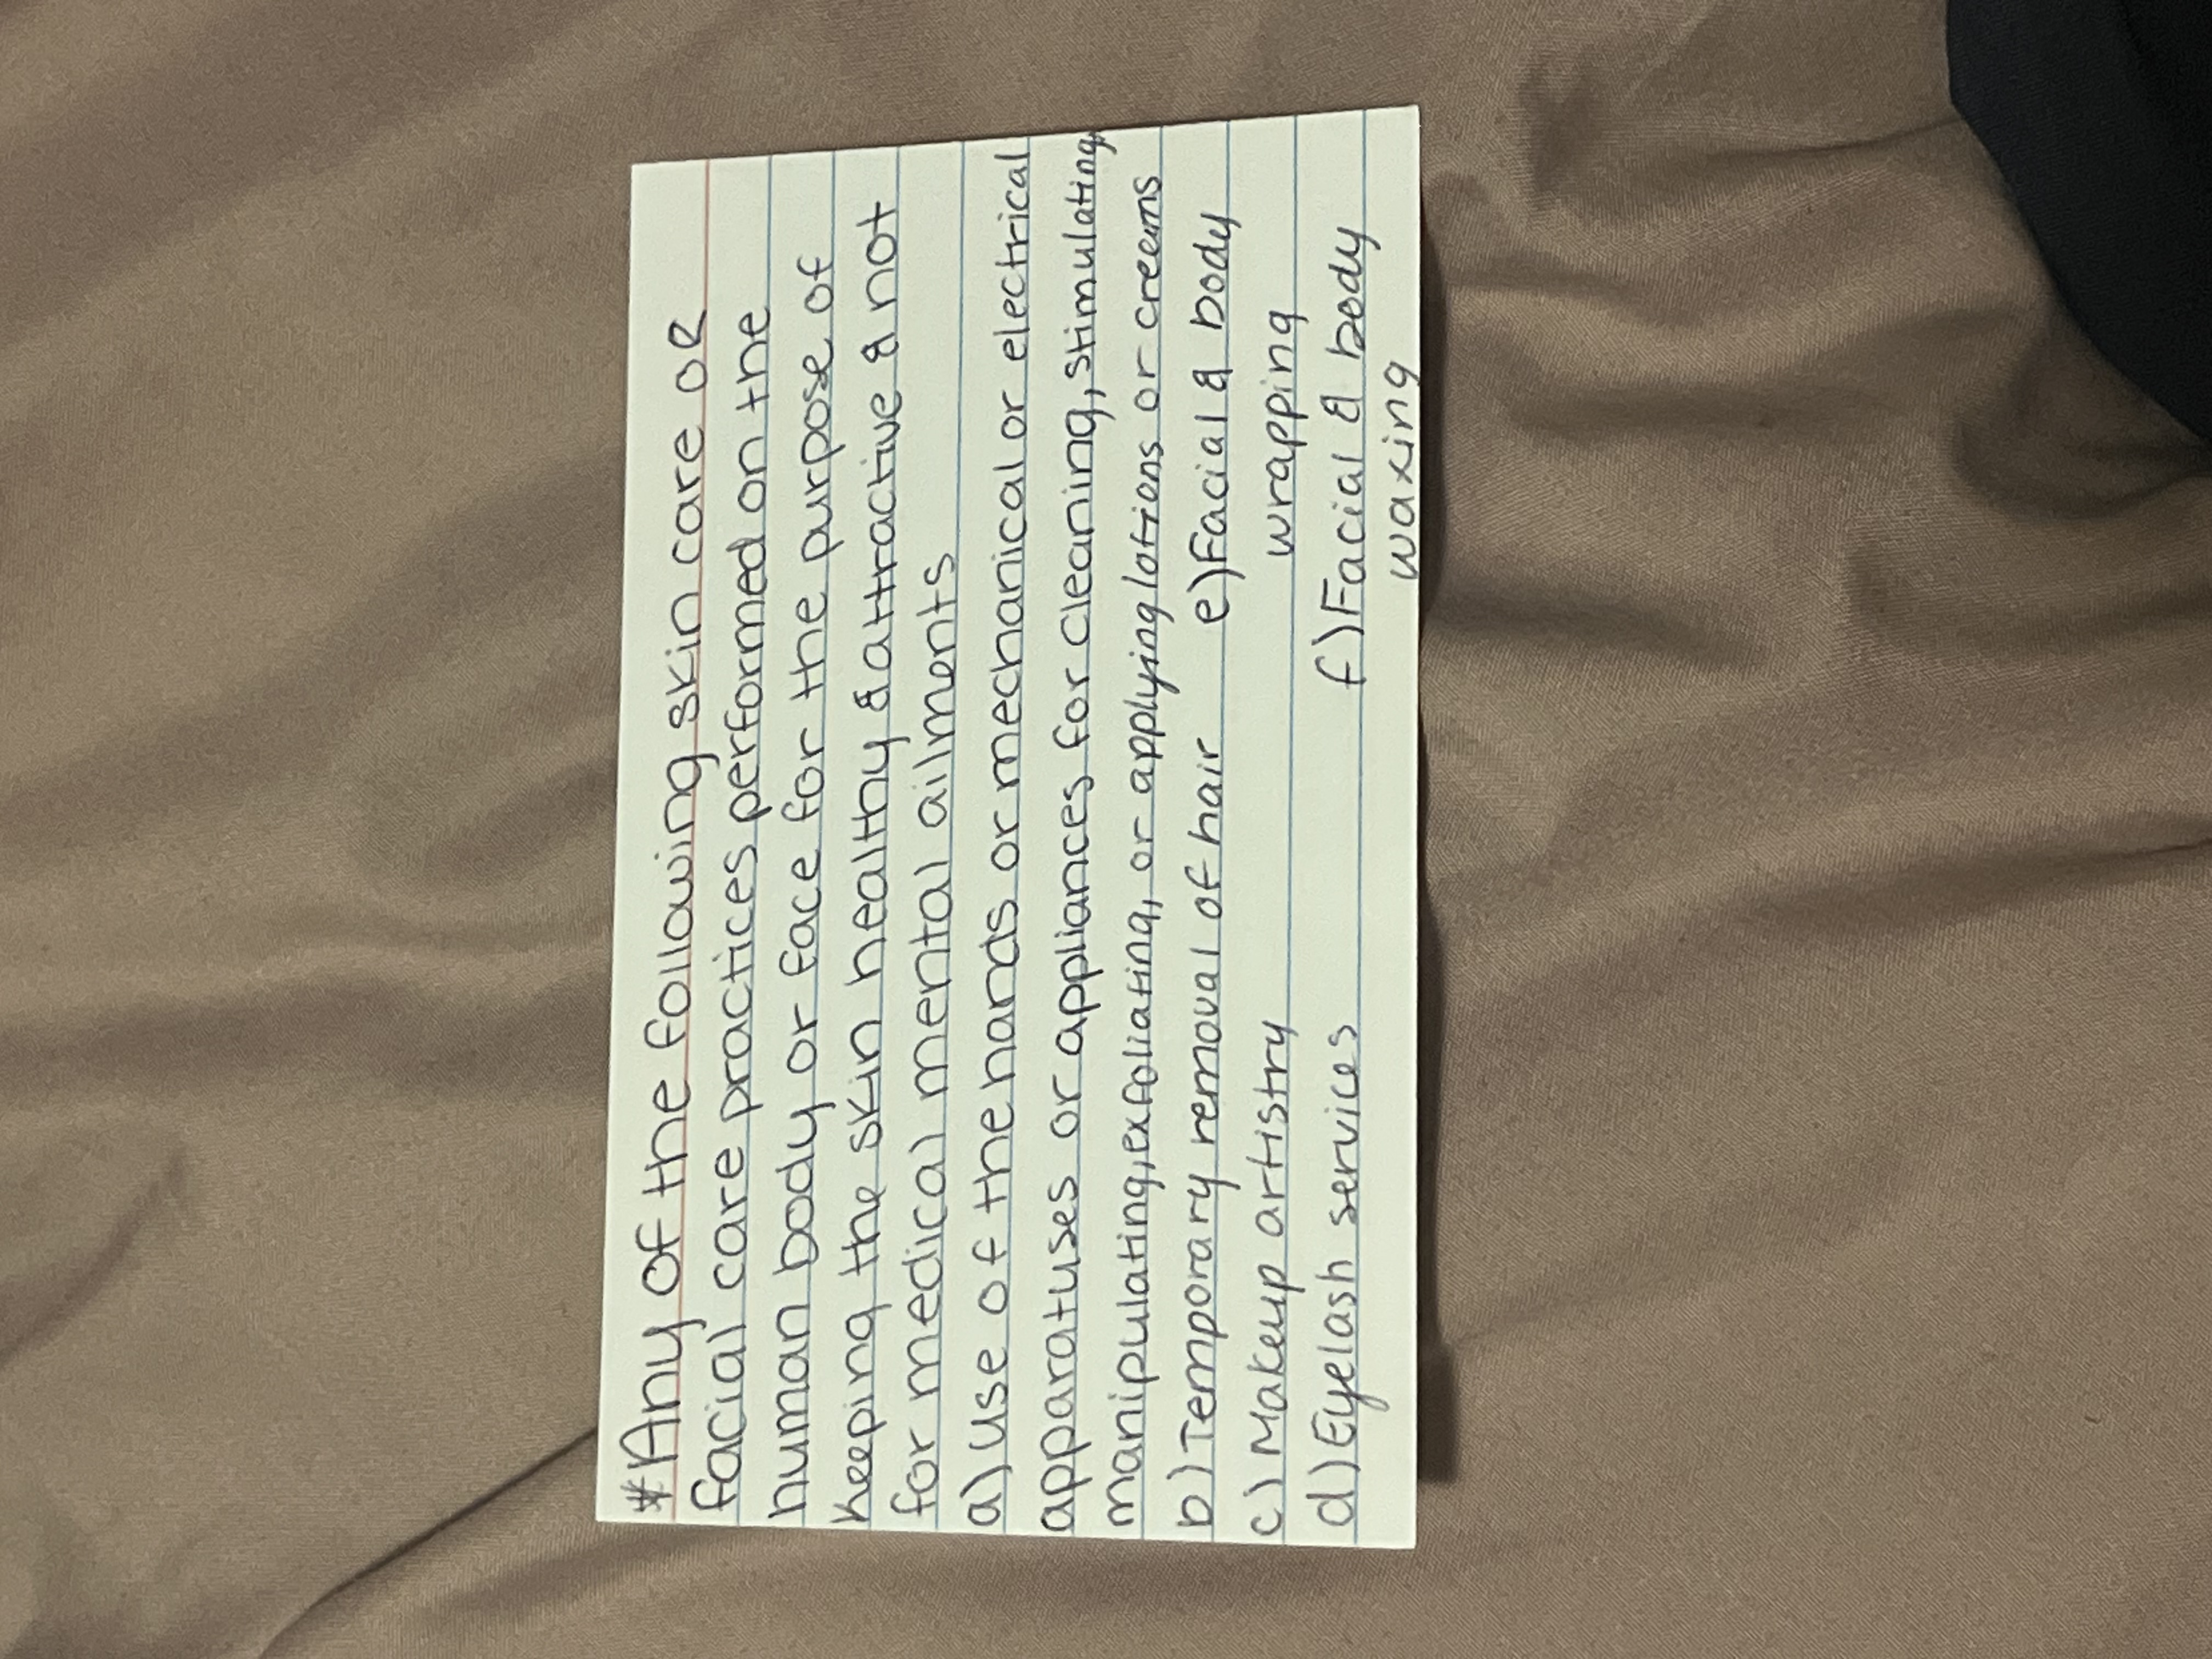 *Any of the following skin care or
facial care practices performed on the
human body or face for the purpose of
keeping the skin healthy & attractive & not
for medical mental ailments
a) use of the hands or mechanical or electrical
apparatuses or appliances for cleaning, stimulating,
manipulating, exfoliating, or applying lotions or creems
b) Temporary removal of hair
c) Makeup artistry
d) Eyelash services
e) Facial & body
wrapping
f) Facial & body
waxing